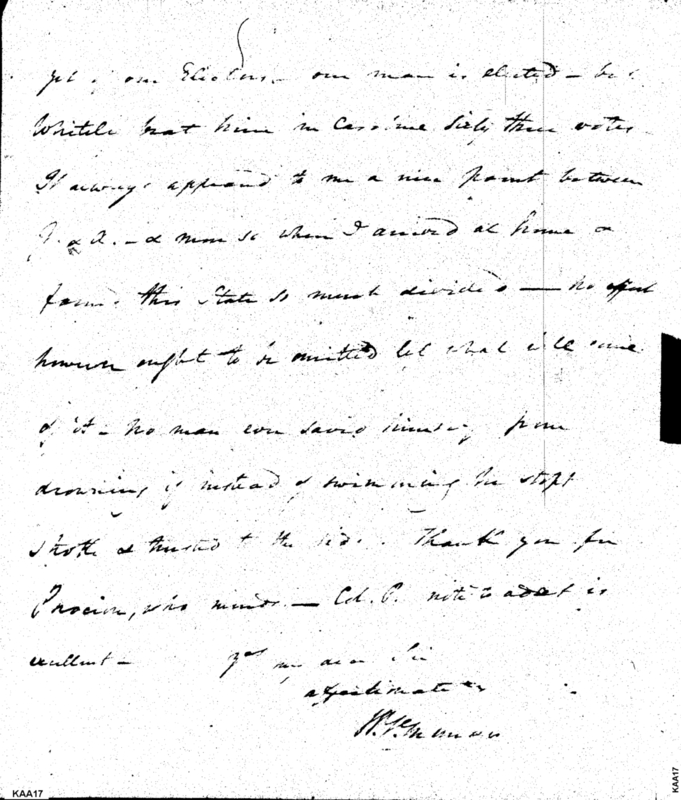 of our Electors — our man is elected — but
Whitely beat him in Caroline Sixty three votes
It always appeared to me a nice point between
J. & A. — & more so when I arrived at home &
found this State so much divided — no effort
however ought to be omitted let what will come
of it — no man ever saved himself from
drowning if instead of swimming he stopt
& trusted to the tide. Thank you for
Phocion, who minds — Col. P. note to adet is
excellent — Yrs my dear Sir
affectionately
Wm
KAA17
KAA17